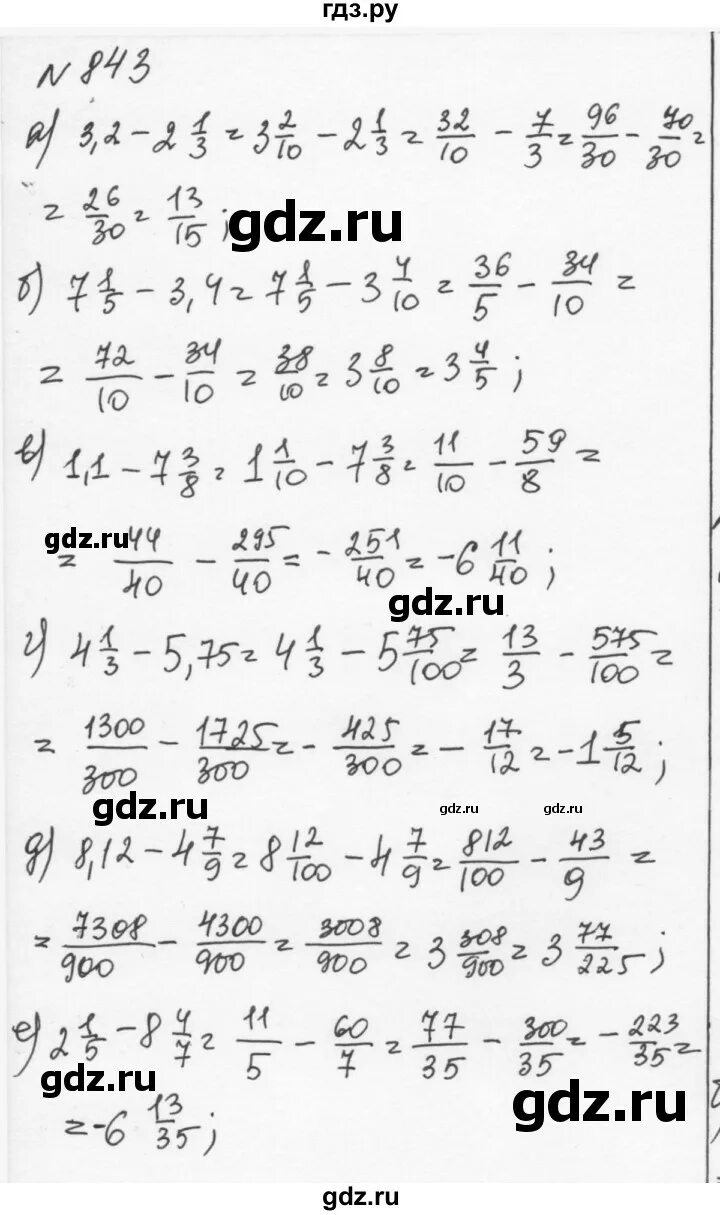 гдз.ру
N 843
а) 3,2 - 2 1/3 = 3 2/10 - 2 1/3 = 32/10 - 7/3 = 96/30 - 70/30 =
= 26/30 = 13/15 ;
gdz.ru
б) 7 1/5 - 3,4 = 7 1/5 - 3 4/10 = 36/5 - 34/10 =
= 72/10 - 34/10 = 38/10 = 3 8/10 = 3 4/5 ;
в) 1,1 - 7 3/8 = 1 1/10 - 7 3/8 = 11/10 - 59/8 =
gdz.ru
= 44/40 - 295/40 = - 251/40 = -6 11/40 ;
gdz.ru
г) 4 1/3 - 5,75 = 4 1/3 - 5 75/100 = 13/3 - 575/100 =
= 1300/300 - 1725/300 = - 425/300 = - 17/12 = -1 5/12 ;
gdz.ru
gdz.ru gdz.ru
д) 8,12 - 4 7/9 = 8 12/100 - 4 7/9 = 812/100 - 43/9 =
= 7308/900 - 4300/900 = 3008/900 = 3 308/900 = 3 77/225 ;
е) 2 1/5 - 8 4/7 = 11/5 - 60/7 = 77/35 - 300/35 = - 223/35 =
gdz.ru
gdz.ru
= -6 13/35 ;
gdz.ru